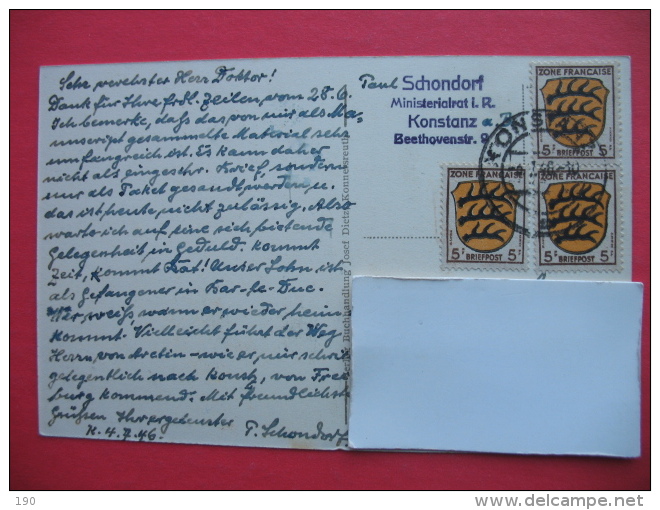 Sehr verehrter Herr Doktor!
Dank für Ihre frdl. Zeilen vom 28.6.
Ich bemerke, daß das von mir als Ma-
nuscript gesammelte Material sehr
umfangreich ist. Es kann daher
nicht als eingeschr. Brief, sondern
nur als Paket gesandt werden u.
das ist heute nicht zulässig. Also
warte ich auf eine sich bietende
Gelegenheit in Geduld. Kommt
Zeit, kommt Rat! Unser Sohn ist
als Gefangener in Bar-le-Duc.
Wer weiß, wann er wieder heim
kommt. Vielleicht führt der Weg
Herrn von Aretin - wie er mir schrieb
gelegentlich nach Konst, von Frei
burg kommend. Mit freundlichst
Grüßen Ihr ergebenster
K. 4.7.46. P. Schondorf
Paul Schondorf
Ministerialrat i. R.
Konstanz a.
Beethovenstr. 9
Buchhandlung Josef Dietz, Konnersreuth
KONS
ZONE FRANÇAISE
5 BRIEFPOST 5
ZONE FRANÇAISE
5 BRIEFPOST 5
ZONE FRANÇAISE
5 BRIEFPOST 5
190
delcampe.net